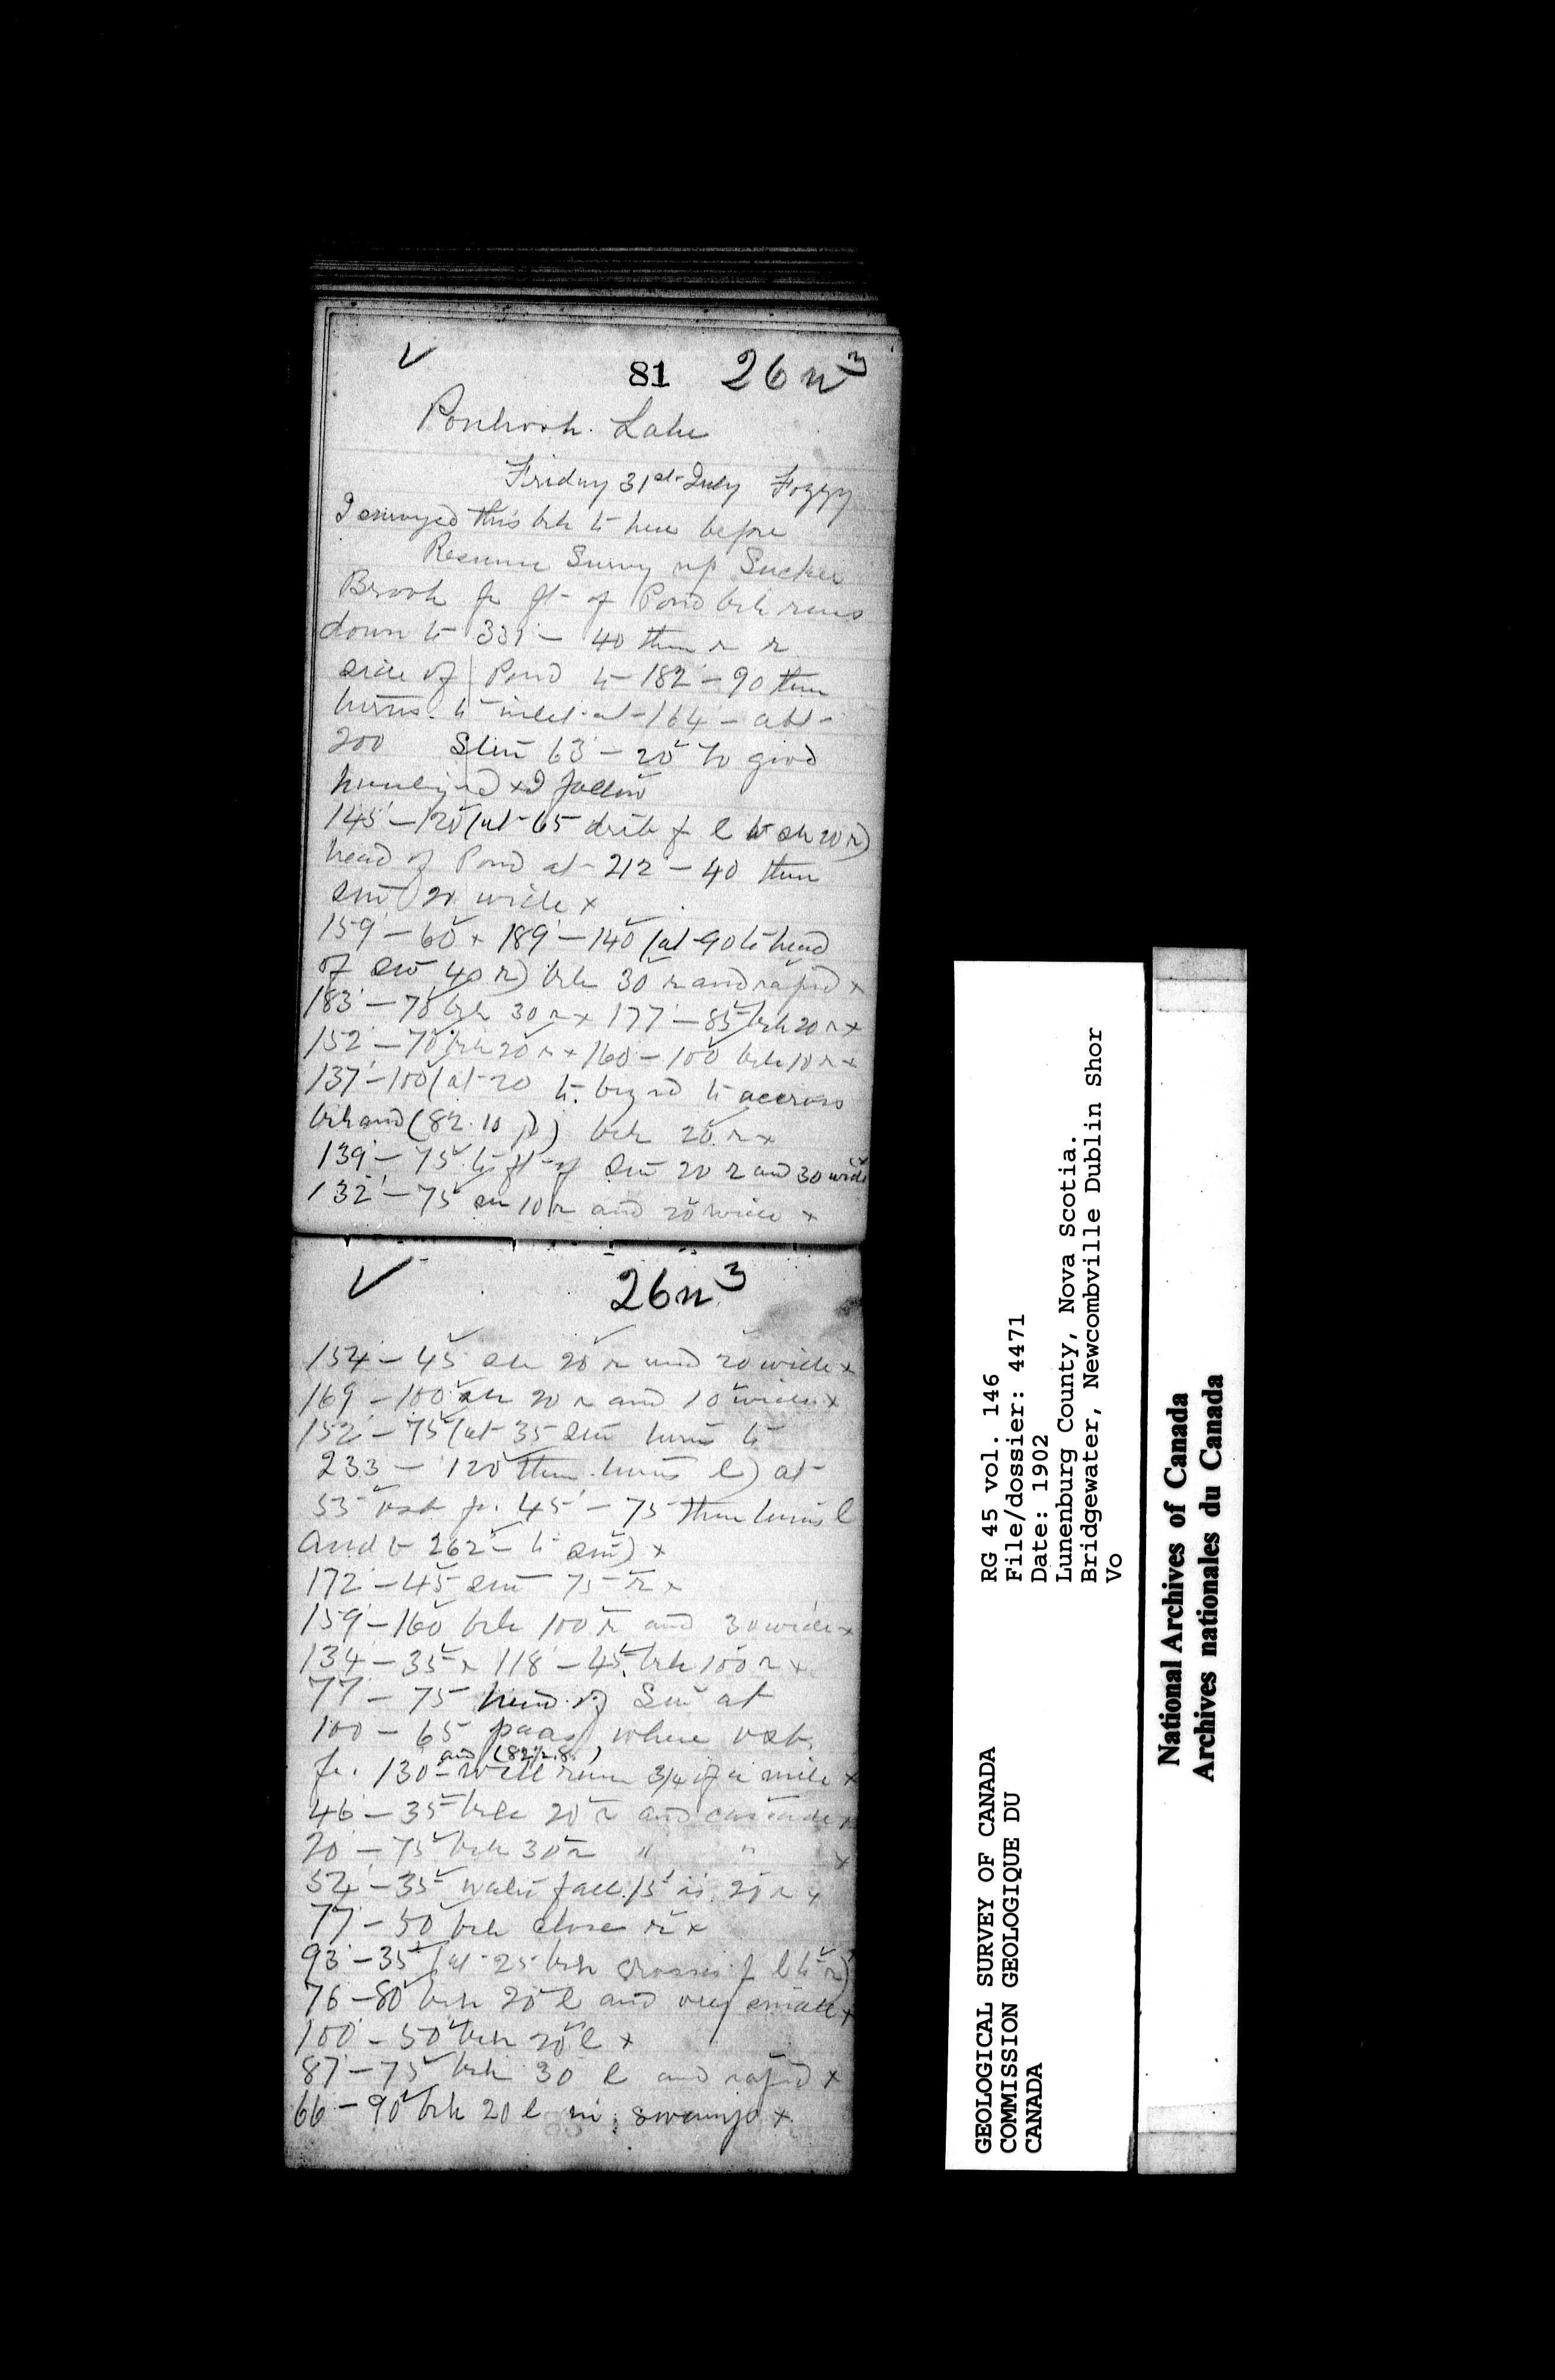 81 26n3
Ponhook Lake
Friday 31st July Foggy
I surveyed this brk to here before
Resume Survey up Sucker
Brook fr ft of Pond brk runs
down to 331 - 40 then r
side of Pond to 182 - 90 then
turns to inlet at 164 - abt
200 63 - 20 to good
& I follow
145 - 120 (at 65 fr l to 20 r)
head of Pond at 212 - 40 then
20 wide x
159 - 60 x 189 - 140 (at 90 to head
of 40 r) brk 30 r and rapid x
183 - 70 brk 30 r x 177 - 85 brk 20 r x
152 - 70 brk 20 r x 160 - 100 brk 10 r x
137 - 100 (at 20 to accross
brk and (82.10 p) brk 20 r x
139 - 75 to ft of 20 r and 30 wide
132 - 75 10 r and 20 wide x
26n3
154 - 45 20 r and 20 wide x
169 - 100 20 r and 10 wide x
152 - 75 (at 35 turns to
233 - 120 then turns l) at
55 fr. 45 - 75 then turns l
and 262 - to ) x
172 - 45 75 r x
159 - 160 brk 100 r and 30 wide x
134 - 35 x 118 - 45 brk 100 r x
77 - 75 head of at
100 - 65 where
and
fr. 130 - will run 3/4 of a mile x
46 - 35 brk 20 r and cascade x
20 - 75 brk 30 r " " x
52 - 35 water fall 15 is 20 r x
77 - 50 brk close r x
93 - 35 (at 25 brk crosses f l to r)
76 - 80 brk 20 l and very small x
100 - 50 brk 20 l x
87 - 75 brk 30 l and rapid x
66 - 90 brk 20 l in swamp x
RG 45 vol. 146
File/dossier: 4471
Date: 1902
Lunenburg County, Nova Scotia.
Bridgewater, Newcombville Dublin Shor
Vo
GEOLOGICAL SURVEY OF CANADA
COMMISSION GEOLOGIQUE DU
CANADA
National Archives of Canada
Archives nationales du Canada